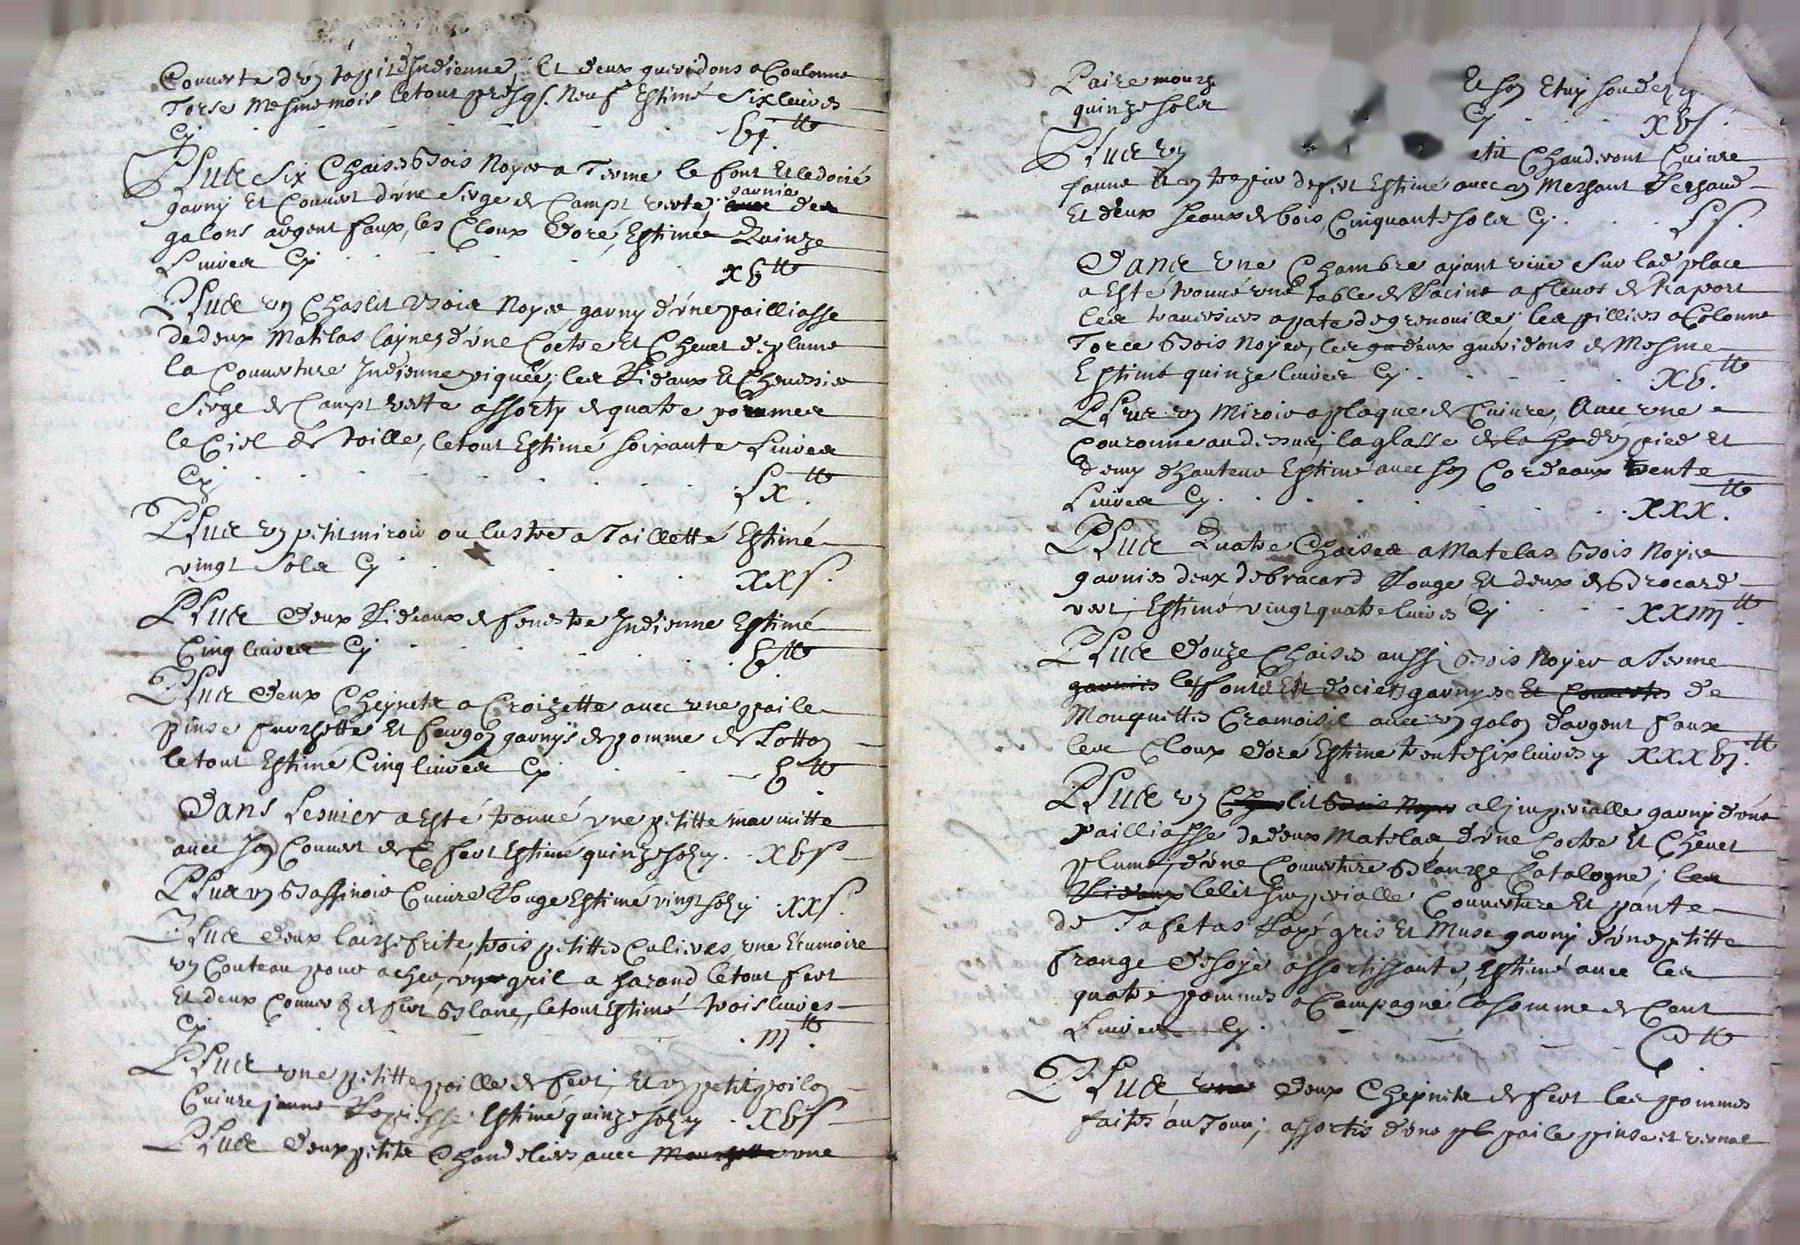 Couverte d'un tappit d'Indienne, Et deux gueridons a Coulonne
Torse Mesme mois le tout presqs. Neuf Estimé Six livres
Cy . . . . . . bj tt
Plus Six Chaises Bois Noyer a Terme le font Et le docié
garny Et Couvert d'une Serge de Campt verte, garnie des
galons argent faux, les Cloux Doré, Estimée Quinze
Livres Cy . . . . . xb tt
Plus un Chaslit Bois Noyer garny d'une pailliasse
de deux Matelas laynes, d'une Coetre Et Chevet de plume
la Couverture Indienne piquée, les Rideaux Et Chevessier
Serge de Campt verte assorty de quatre pommes
le Ciel de toille, le tout Estimé soixante Livres
Cy . . . . . . Lx tt
Plus un petit miroir ou lustre a Taillette Estimé
vingt Sols Cy . . . . . xxs.
Plus Deux Rideaux de fenestre Indienne Estimé
Cinq livres Cy . . . . . b tt
Plus deux Cheynets a Croizette avec une paile
pinse fourchette Et fourgon garnys de pomme de Lotton
le tout Estimé Cinq livres Cy . . . b tt
Dans Lesvier a Esté trouvé une petitte marmitte
avec son Couvert de fert Estimé quinze sols Cy . xbs
Plus un Bassinoir Cuivre Rouge Estimé vingt sols Cy . xxs.
Plus deux laichefrite, trois petittes Culieres, une Ecumoire
un Couteau pour acher, un gril a harand le tout fert
Et deux Couvers de fert Blanc, le tout Estimé trois livres
Cy . . . . . . iij tt
Plus une petitte poille de fert, Et un petit poilon
Cuivre jaune Estimé quinze sols Cy . xbs
Plus Deux petits Chandeliers avec une
Paire mouch Et son Etuy
quinze sols Cy . . xbs.
Plus un etit Chauderont Cuivre
Jaune Et un trepier de fert Estimé avec un
Et deux seaux de bois, Cinquante sols Cy . . . Ls.
Dans une Chambre ayant viüe Sur lad. place
a Esté trouvé une table de Racine a fleurs de Raport
les traversiers a pate de grenouille, les pilliers a Colonne
Torce Bois Noyer, les deux gueridons de Mesme
Estimé quinze livres Cy . . . . . xb. tt
Plus un Miroir a plaque de Cuivre, Avec une
Couronne au dessus, la glasse de d'un pied et
demy d'hauteur Estimé avec son Cordeaux trente
Livres Cy . . . . . xxx. tt
Plus Quatre Chaises a Matelas Bois Noyer
garnies deux de bracard Rouge Et deux de Brocard
vert, Estimé vingt quatre livres Cy . . . xxiiij tt
Plus Douze Chaises aussi Bois Noyer a Terme
garnies les fonts Et dociers garnys Et Couverts de
Mouquettes Cramoisie avec un galon d'argent faux
les Cloux doré Estimé trente six livres Cy xxxbj. tt
Plus un Chalit Bois Noyer a l'imperialle garny d'une
pailliasse de deux Matelas d'une Coetre Et Chevet
plume, d'une Couverture Blanche Catalogne, les
Rideaux le lit Imperialle Couverture Et pante
de Tafetas Rayé gris Et Musc garny d'une petitte
frange de soye assortissante, Estimé avec les
quatre pommes a Campagne la somme de Cent
Livres Cy . . . . . C tt
Plus une deux Cheynets de fert les pommes
faites au Tour, assortis d'une paile pinse et